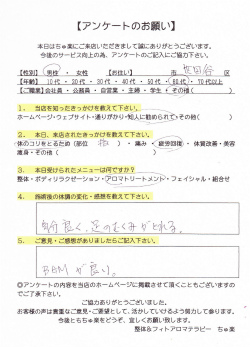 【アンケートのお願い】
本日はちゅ楽にご来店いただきまして誠にありがとうございます。
今後のサービス向上の為、アンケートのご記入にご協力下さい。
【性別】 男性 ・ 女性 【お住い】 市 世田谷 区
【年齢】 10代・20代・30代・40代・50代・60代・70代以上
【ご職業】会社員・公務員・自営業・主婦・学生・その他( )
1. 当店を知ったきっかけを教えて下さい。
ホームページ・ウェブサイト・通りがかり・知人に勧められて・その他( )
2. 本日、来店された きっかけを教えて下さい。
体のコリをとるため(部位 ) ・ 痛み ・ 疲労回復 ・ 体質改善・美容
痩身・その他( )
3. 本日受けられたメニューは何ですか?
整体・ボディリラクゼーション・アロマトリートメント・フェイシャル・組合せ
4. 施術後の体調の変化・感想を教えて下さい。
気分良く、足のむくみがとれる。
5. ご意見・ご感想がありましたらご記入下さい。
BGMが良い。
◎アンケートの内容を当店のホームページに掲載させて頂くこともございますの
でご了承下さい。
ご協力ありがとうございました。
お客様の声は貴重なご意見・ご要望として、活かしていけるよう努力して参ります。
今後ともちゅ楽をどうぞ、宜しくお願い致します。
整体&フィトアロマテラピー ちゅ楽